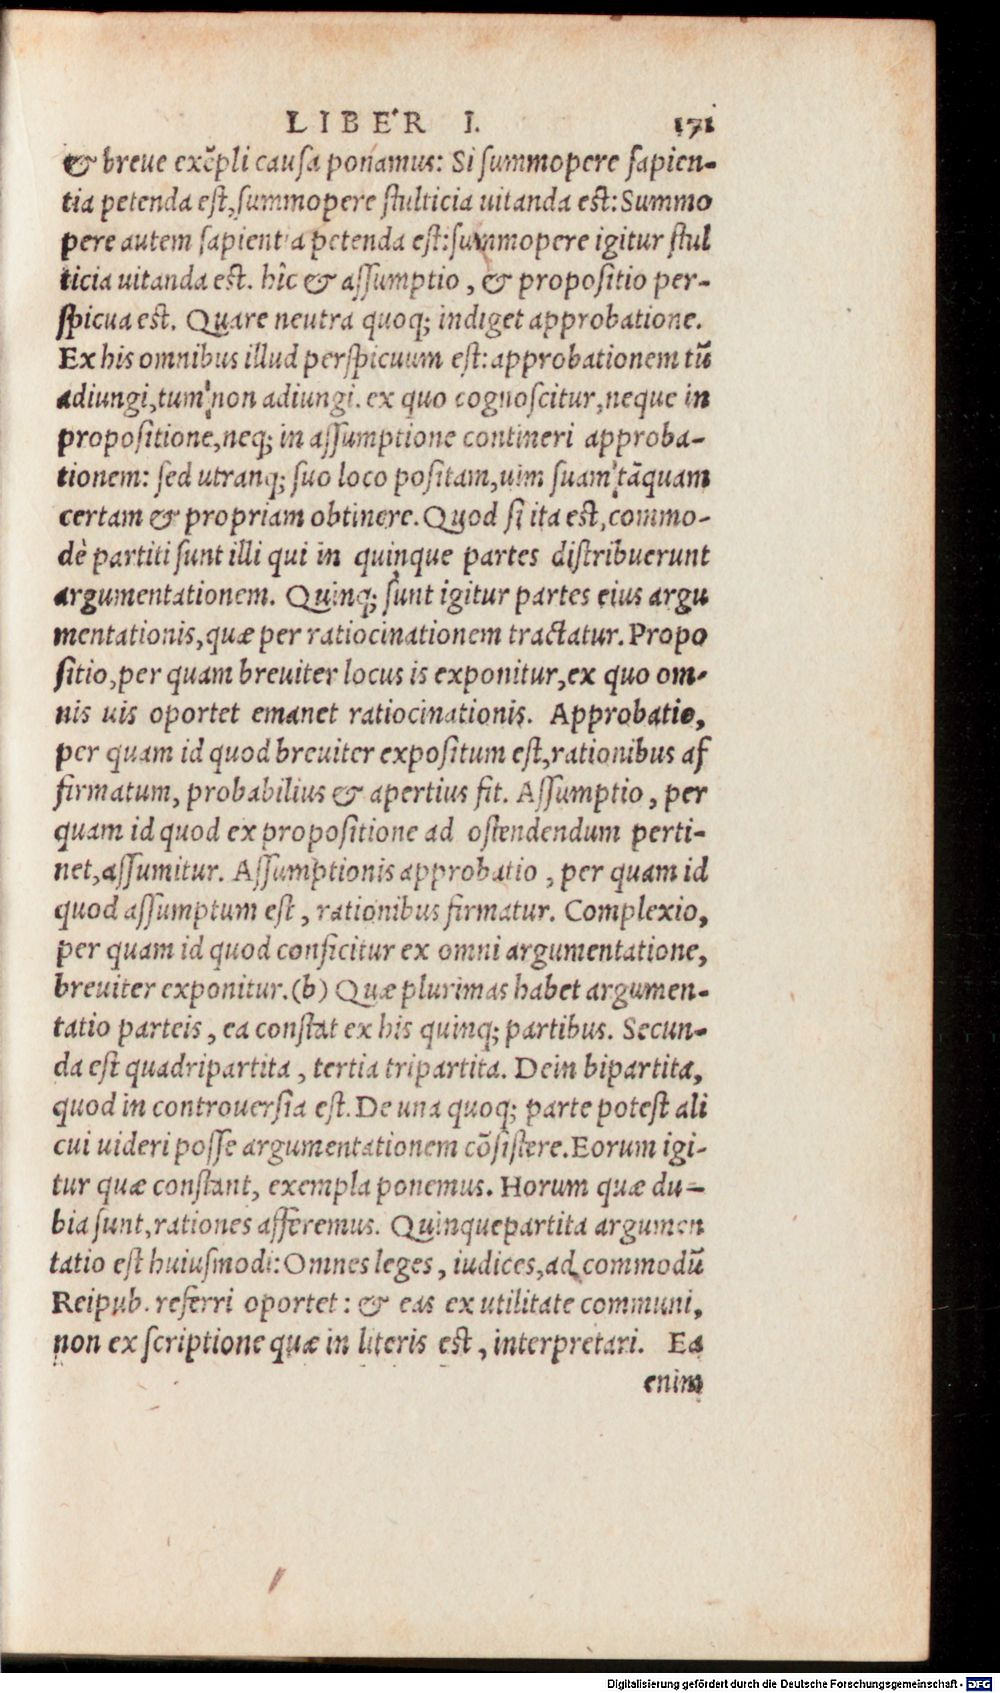 LIBER I. 171
& breue exẽpli causa ponamus: Si summopere sapien-
tia petenda est, summopere stulticia uitanda est: Summo
pere autem sapientia petenda est: summopere igitur stul
ticia uitanda est. hîc & assumptio, & propositio per-
spicua est. Quare neutra quoq; indiget approbatione.
Ex his omnibus illud perspicuum est: approbationem tũ
adiungi, tum non adiungi. ex quo cognoscitur, neque in
propositione, neq; in assumptione contineri approba-
tionem: sed utranq; suo loco positam, uim suam tãquam
certam & propriam obtinere. Quod si ita est, commo-
dè partiti sunt illi qui in quinque partes distribuerunt
argumentationem. Quinq; sunt igitur partes eius argu
mentationis, quæ per ratiocinationem tractatur. Propo
sitio, per quam breuiter locus is exponitur, ex quo om-
nis uis oportet emanet ratiocinationis. Approbatio,
per quam id quod breuiter expositum est, rationibus af
firmatum, probabilius & apertius fit. Assumptio, per
quam id quod ex propositione ad ostendendum perti-
net, assumitur. Assumptionis approbatio, per quam id
quod assumptum est, rationibus firmatur. Complexio,
per quam id quod conficitur ex omni argumentatione,
breuiter exponitur. (b) Quæ plurimas habet argumen-
tatio parteis, ea constat ex his quinq; partibus. Secun-
da est quadripartita, tertia tripartita. Dein bipartita,
quod in controuersia est. De una quoq; parte potest ali
cui uideri posse argumentationem cõsistere. Eorum igi-
tur quæ constant, exempla ponemus. Horum quæ du-
bia sunt, rationes afferemus. Quinquepartita argumen
tatio est huiusmodi: Omnes leges, iudices, ad commodũ
Reipub. referri oportet: & eas ex utilitate communi,
non ex scriptione quæ in literis est, interpretari. Ea
enim
Digitalisierung gefördert durch die Deutsche Forschungsgemeinschaft - DFG